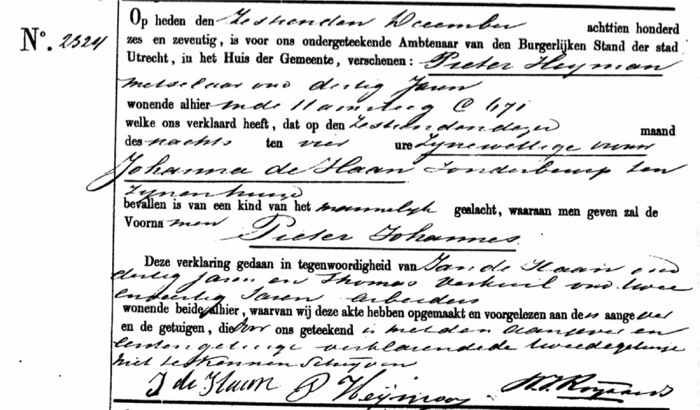 Op heden den Zestienden December achttien honderd
No. 2324 zes en zeventig, is voor ons ondergeteekende Ambtenaar van den Burgerlijken Stand der stad
Utrecht, in het Huis der Gemeente, verschenen: Pieter Heyman
metselaar oud dertig Jaren
wonende alhier in de steeg C 471
welke ons verklaard heeft, dat op den Zestienden dezer maand
des nachts ten vier ure zyne wettige vrouw
Johanna de Haan zonder beroep ten
zynen huize
bevallen is van een kind van het mannelyk geslacht, waaraan men geven zal de
Voornamen Pieter Johannes.
Deze verklaring gedaan in tegenwoordigheid van Jan de Haan oud
dertig jaren en Thomas Verkuil oud twee
en dertig Jaren arbeiders
wonende beide alhier, waarvan wij deze akte hebben opgemaakt en voorgelezen aan den aangever
en de getuigen, die door ons geteekend is met den aangever en
eersten getuige verklarende de tweede getuige
niet te kennen schryven
J de Haan P Heijman